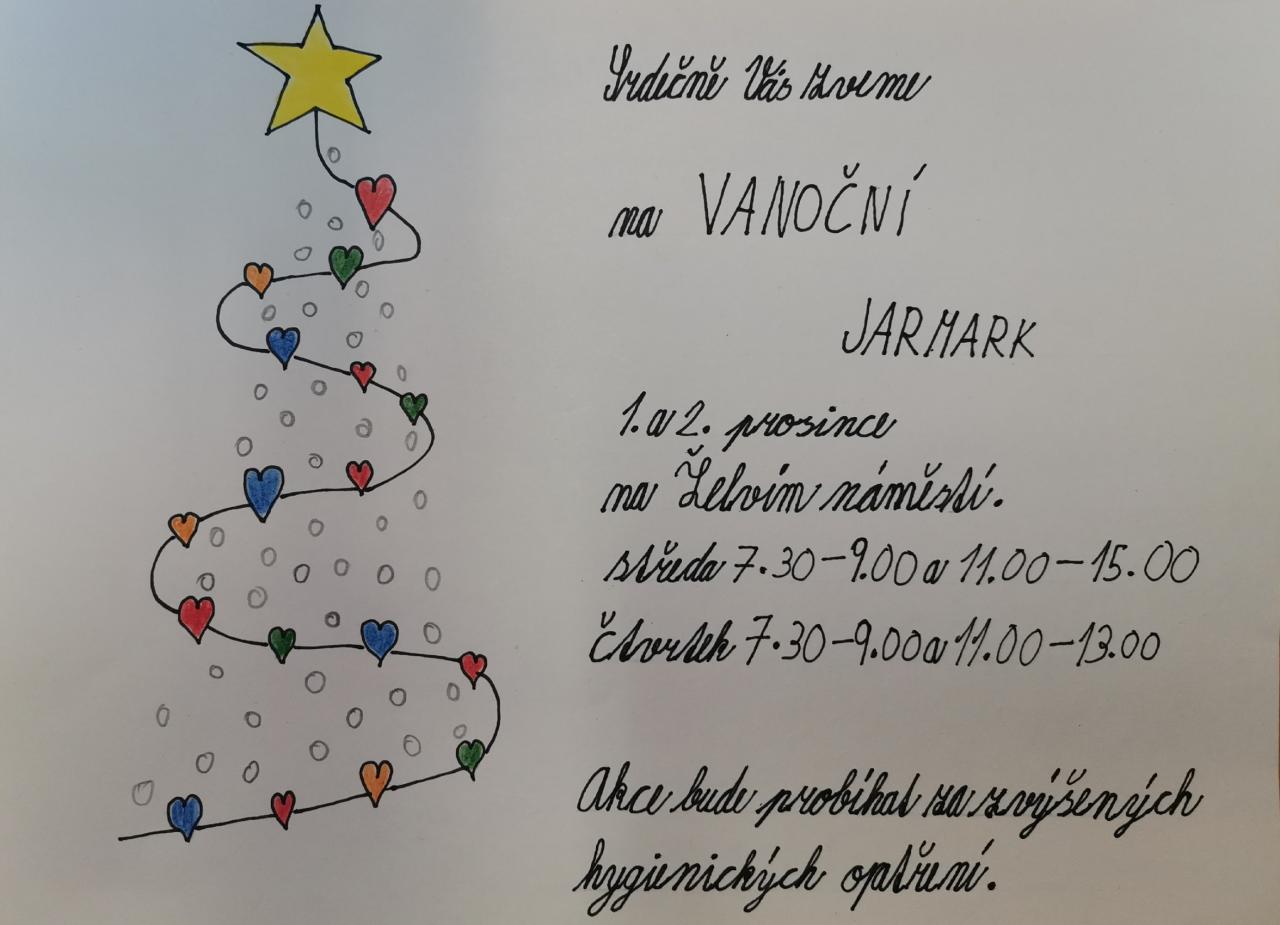 Srdečně Vás zveme
na VANOČNÍ
JARMARK
1. a 2. prosince
na Želvím náměstí.
středa 7.30-9.00 a 11.00-15.00
čtvrtek 7.30-9.00 a 11.00-13.00
Akce bude probíhat za zvýšených
hygienických opatření.